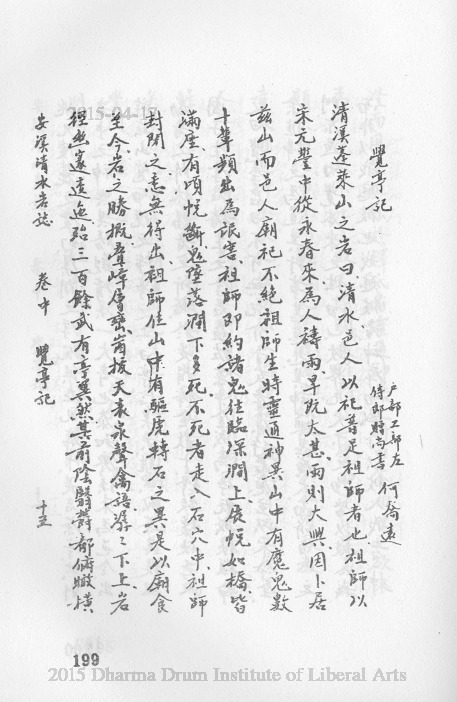 覺亭記
戶部工部左
侍郎贈尚書 何喬遠
清溪蓬萊山之岩曰清水邑人以祀普足祖師者也祖師以
宋元豐中從永春來為人禱雨旱阮太甚雨則大興因卜居
茲山而邑人廟祀不絕祖師生時靈通神異山中有魔鬼數
十輩頻出為民害祖師即約諸鬼往臨深澗上展幌如橋皆
滿座有頃幌斷鬼墜落澗下多死不死者走入石穴中祖師
封閉之悉無得出祖師住山中有驅虎轉石之異是以廟食
至今岩之勝概疊嶂層巒崗援天表泉聲禽語潺潺下上岩
徑幽邃遠迤殆三百餘武有亭翼然其前陰翳蔚都俯瞰橫
安溪清水岩誌 卷中 覺亭記 十五
199
2015-04-17
2015 Dharma Drum Institute of Liberal Arts